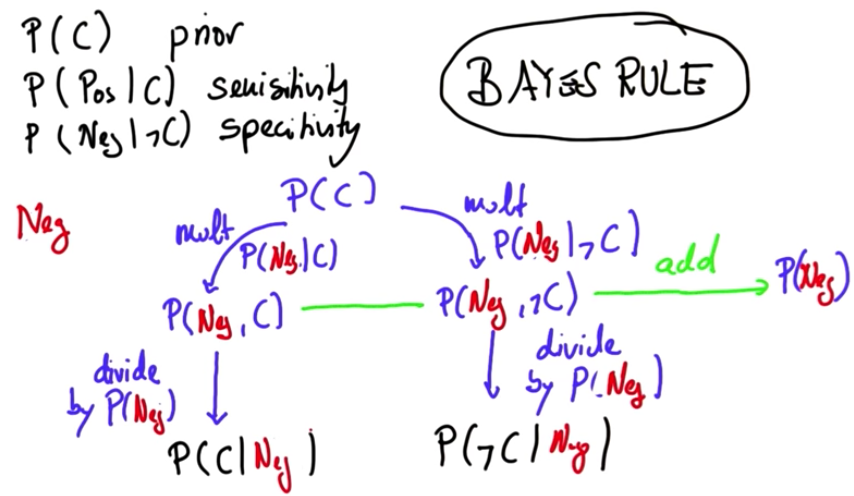 P(C) prior
P(Pos|C) sensitivity
P(Neg|¬C) specitivity
BAYES RULE
Neg
P(C)
mult
P(Neg|C)
mult
P(Neg|¬C)
P(Neg, C)
P(Neg, ¬C)
add
P(Neg)
divide
by P(Neg)
divide
by P(Neg)
P(C|Neg)
P(¬C|Neg)